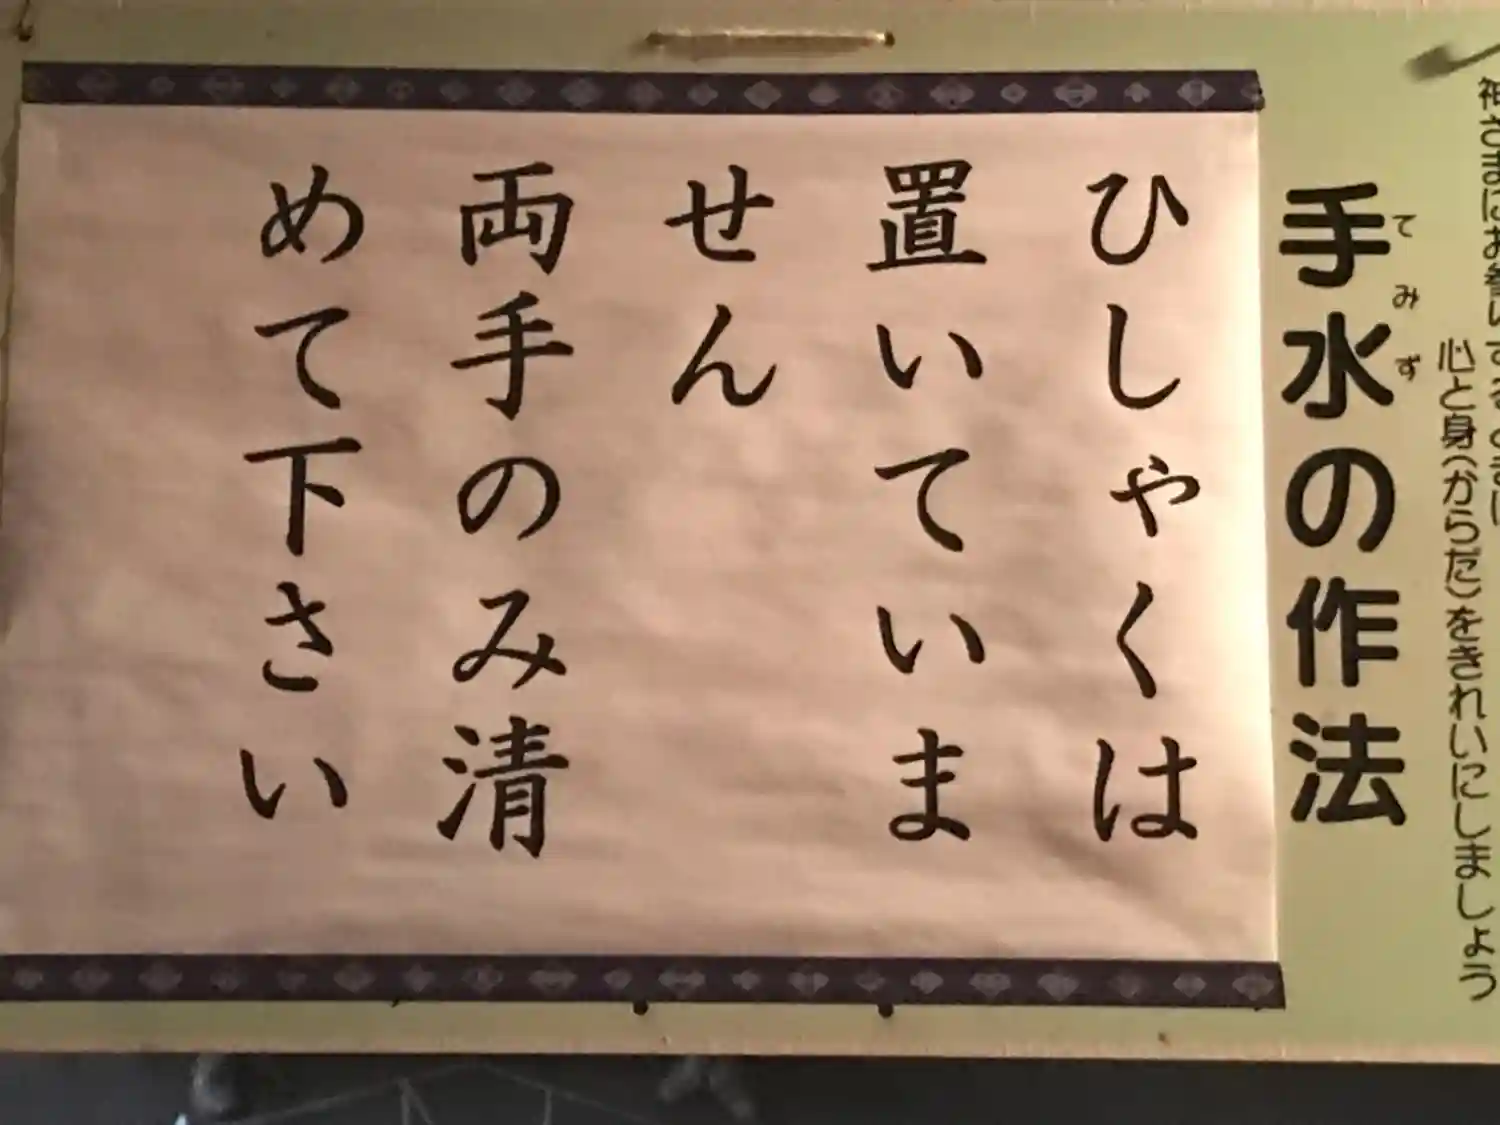 神さまにお参いするときは
心と身(からだ)をきれいにしましょう
手水の作法
てみず
ひしゃくは
置いていま
せん
両手のみ清
めて下さい